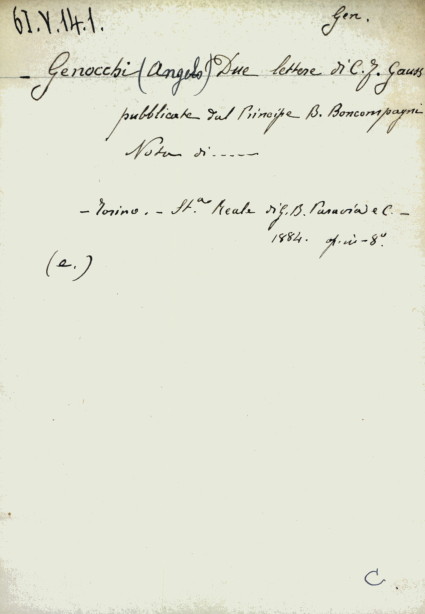 61.V.14.1.
Gen.
- Genocchi (Angelo) Due lettere di C. F. Gauss
pubblicate dal Principe B. Boncompagni
Nota di -----
- Torino. - St.ª Reale di G. B. Paravia e C. -
1884. op. in-8°.
(e.)
C.